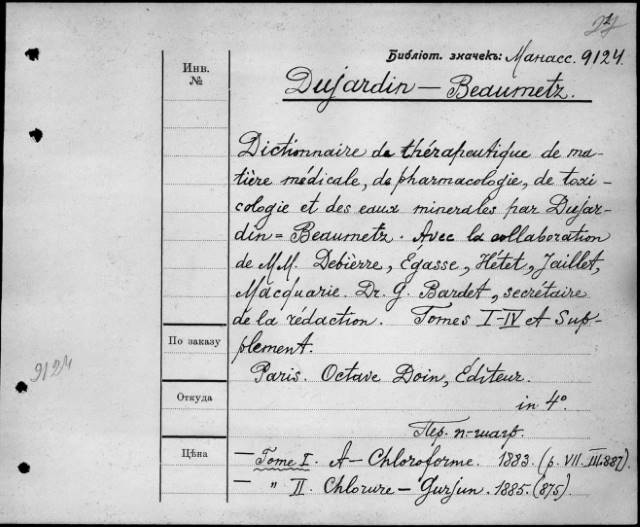 Библіот. значекъ: Манасс. 9124.
Инв. №
Dujardin — Beaumetz.
Dictionnaire de thérapeutique de ma-
tière médicale, de pharmacologie, de toxi-
cologie et des eaux minerales par Dujar-
din = Beaumetz. Avec la collaboration
de MM. Debièrre, Égasse, Hétet, Jaillet,
Macquarie. Dr. G. Bardet, secrétaire
de la rédaction. Tomes I-IV et Sup-
По заказу
plement.
9124
Paris. Octave Doin, Éditeur.
Откуда
in 4°.
Пер. п.-шагр.
Цѣна
— Tome I. A — Chloroforme. 1883. (p. VII. III. 887).
— " II. Chlorure — Gurjun. 1885. (875).